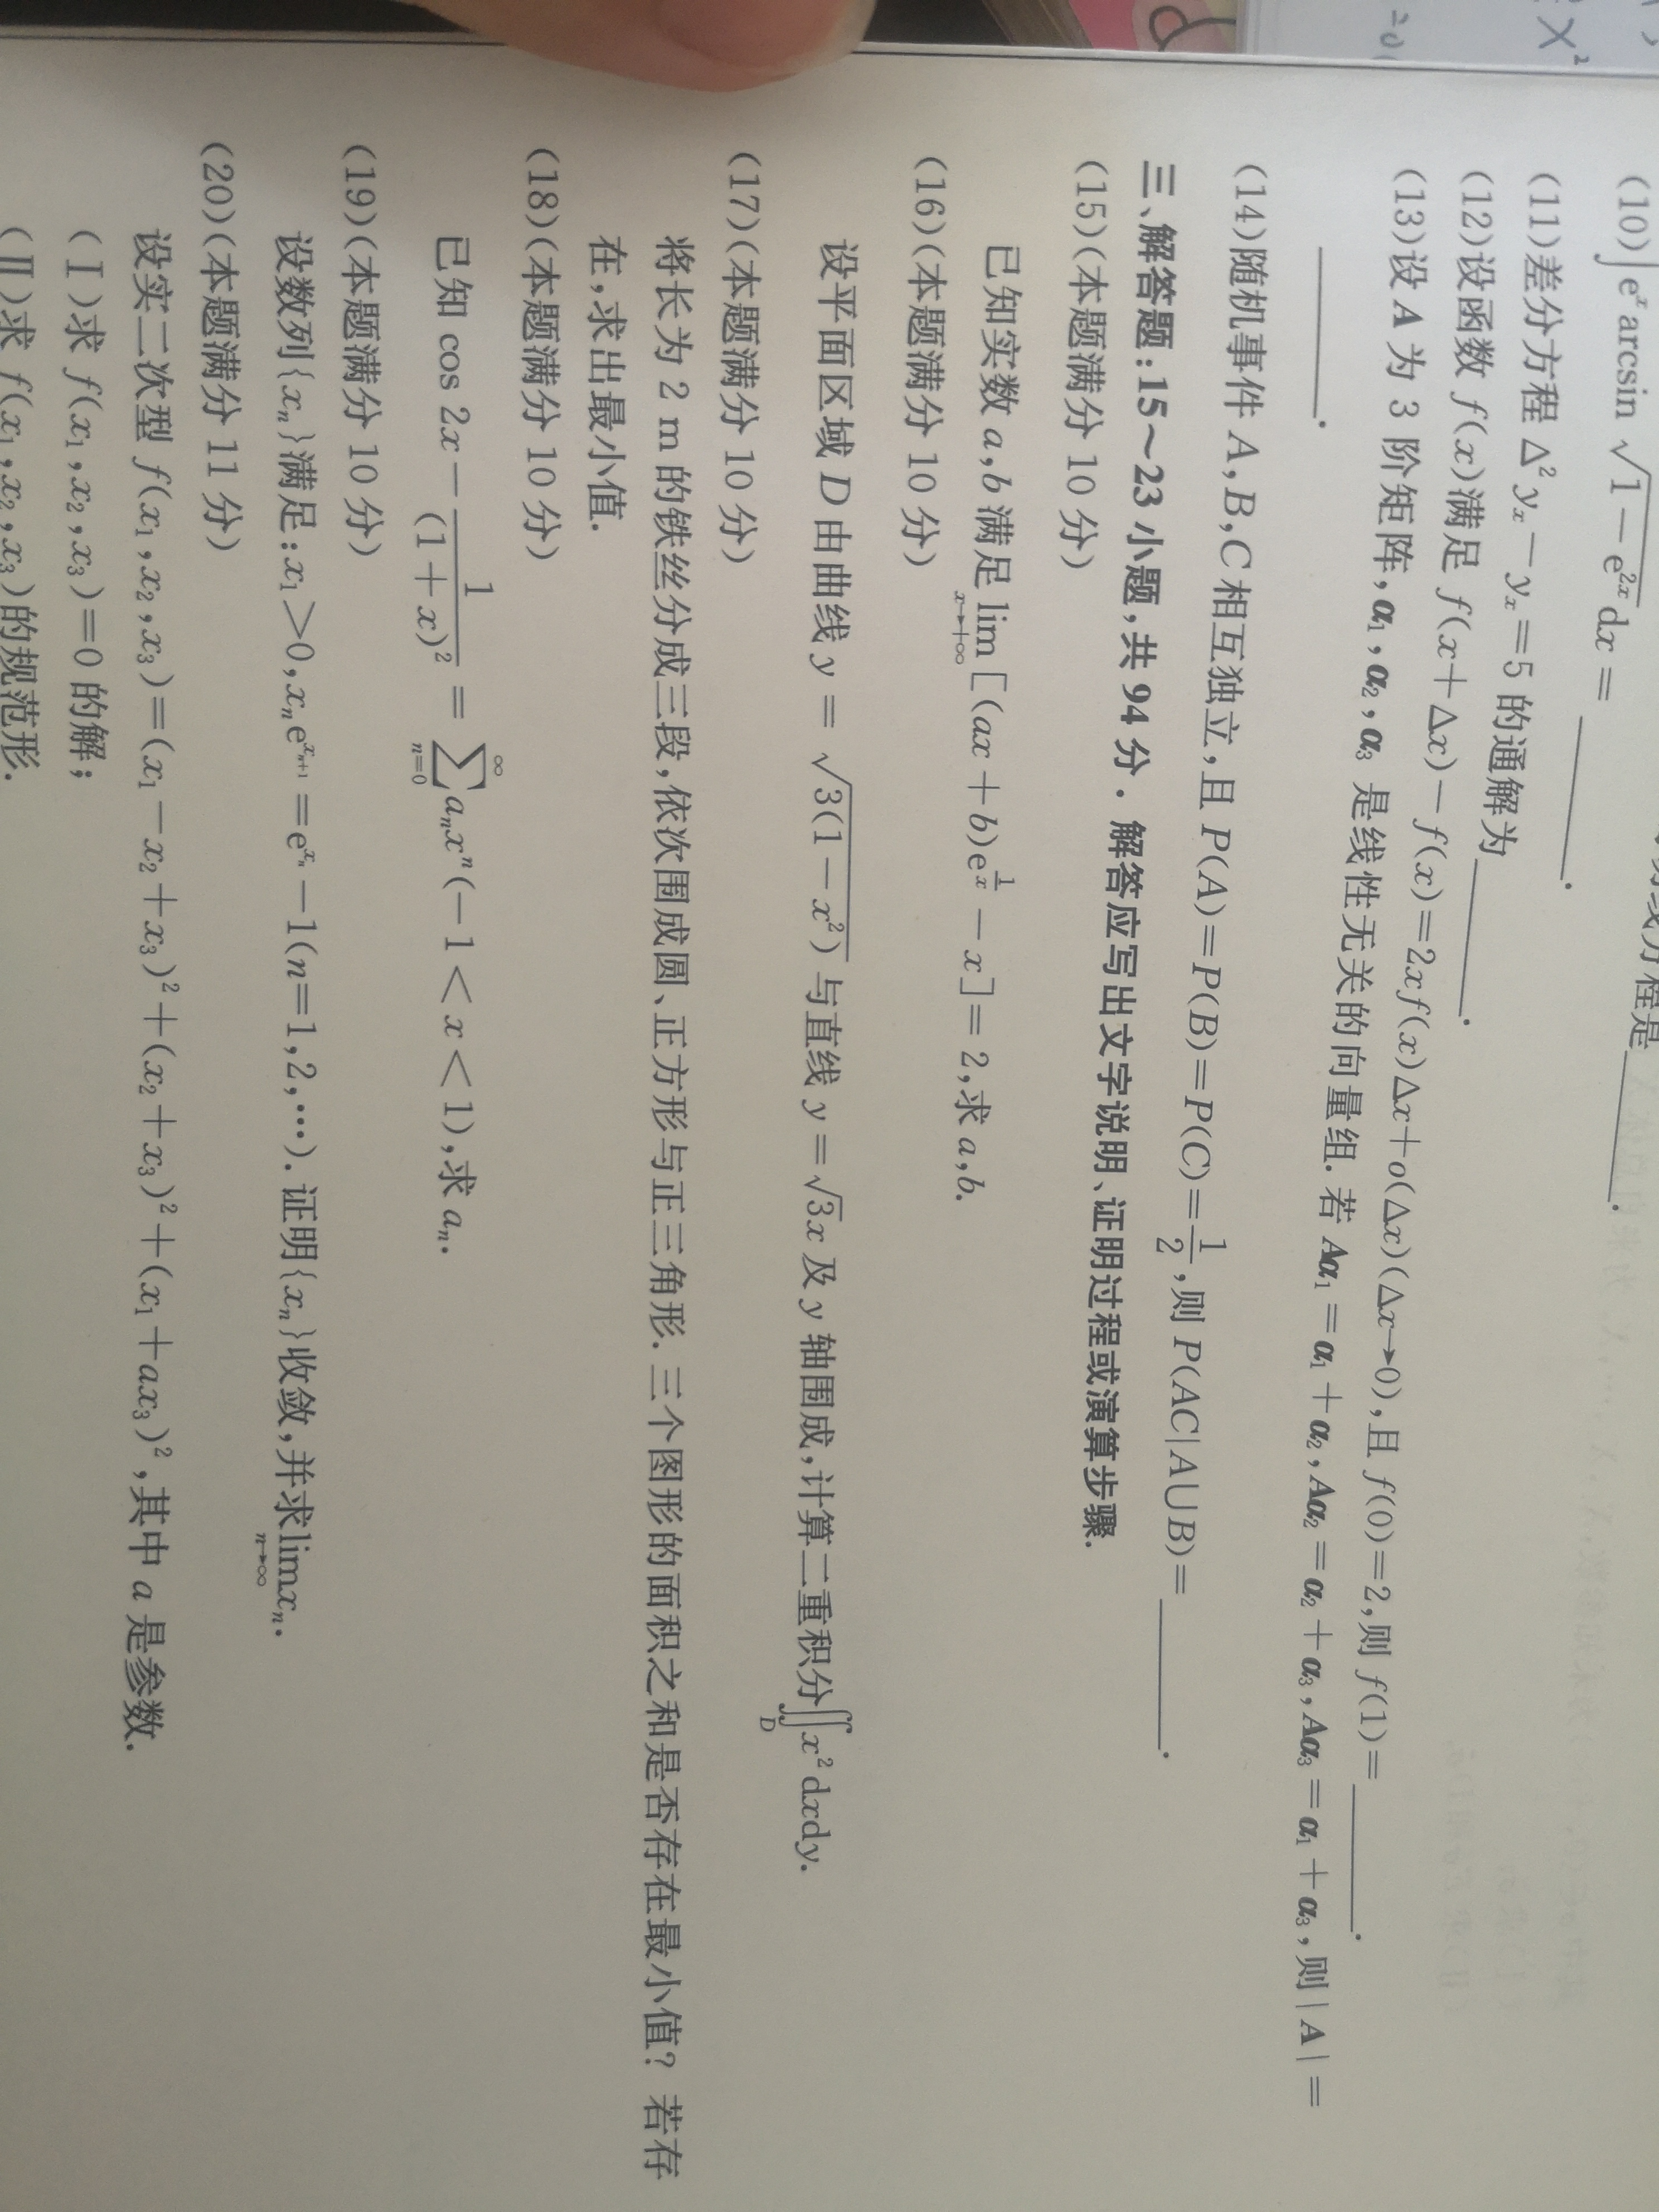 方程是________.
(10)∫eˣarcsin √(1−e²ˣ)dx=________.
(11)差分方程 Δ²yₓ−yₓ=5 的通解为________.
(12)设函数 f(x)满足 f(x+Δx)−f(x)=2xf(x)Δx+o(Δx)(Δx→0),且 f(0)=2,则 f(1)=________.
(13)设 A 为 3 阶矩阵,α₁,α₂,α₃ 是线性无关的向量组. 若 Aα₁=α₁+α₂,Aα₂=α₂+α₃,Aα₃=α₁+α₃,则|A|=
________.
(14)随机事件 A,B,C 相互独立,且 P(A)=P(B)=P(C)=1/2,则 P(AC|A∪B)=________.
三、解答题:15~23 小题,共 94 分. 解答应写出文字说明、证明过程或演算步骤.
(15)(本题满分 10 分)
已知实数 a,b 满足 lim_{x→+∞}[(ax+b)e^{1/x}−x]=2,求 a,b.
(16)(本题满分 10 分)
设平面区域 D 由曲线 y=√(3(1−x²)) 与直线 y=√3x 及 y 轴围成,计算二重积分∬_D x²dxdy.
(17)(本题满分 10 分)
将长为 2 m 的铁丝分成三段,依次围成圆、正方形与正三角形. 三个图形的面积之和是否存在最小值? 若存
在,求出最小值.
(18)(本题满分 10 分)
已知 cos 2x−1/(1+x)²=∑_{n=0}^{∞}aₙxⁿ(−1<x<1),求 aₙ.
(19)(本题满分 10 分)
设数列{xₙ}满足:x₁>0,xₙe^{xₙ₊₁}=e^{xₙ}−1(n=1,2,…). 证明{xₙ}收敛,并求lim_{n→∞}xₙ.
(20)(本题满分 11 分)
设实二次型 f(x₁,x₂,x₃)=(x₁−x₂+x₃)²+(x₂+x₃)²+(x₁+ax₃)²,其中 a 是参数.
(Ⅰ)求 f(x₁,x₂,x₃)=0 的解;
(Ⅱ)求 f(x₁,x₂,x₃)的规范形.